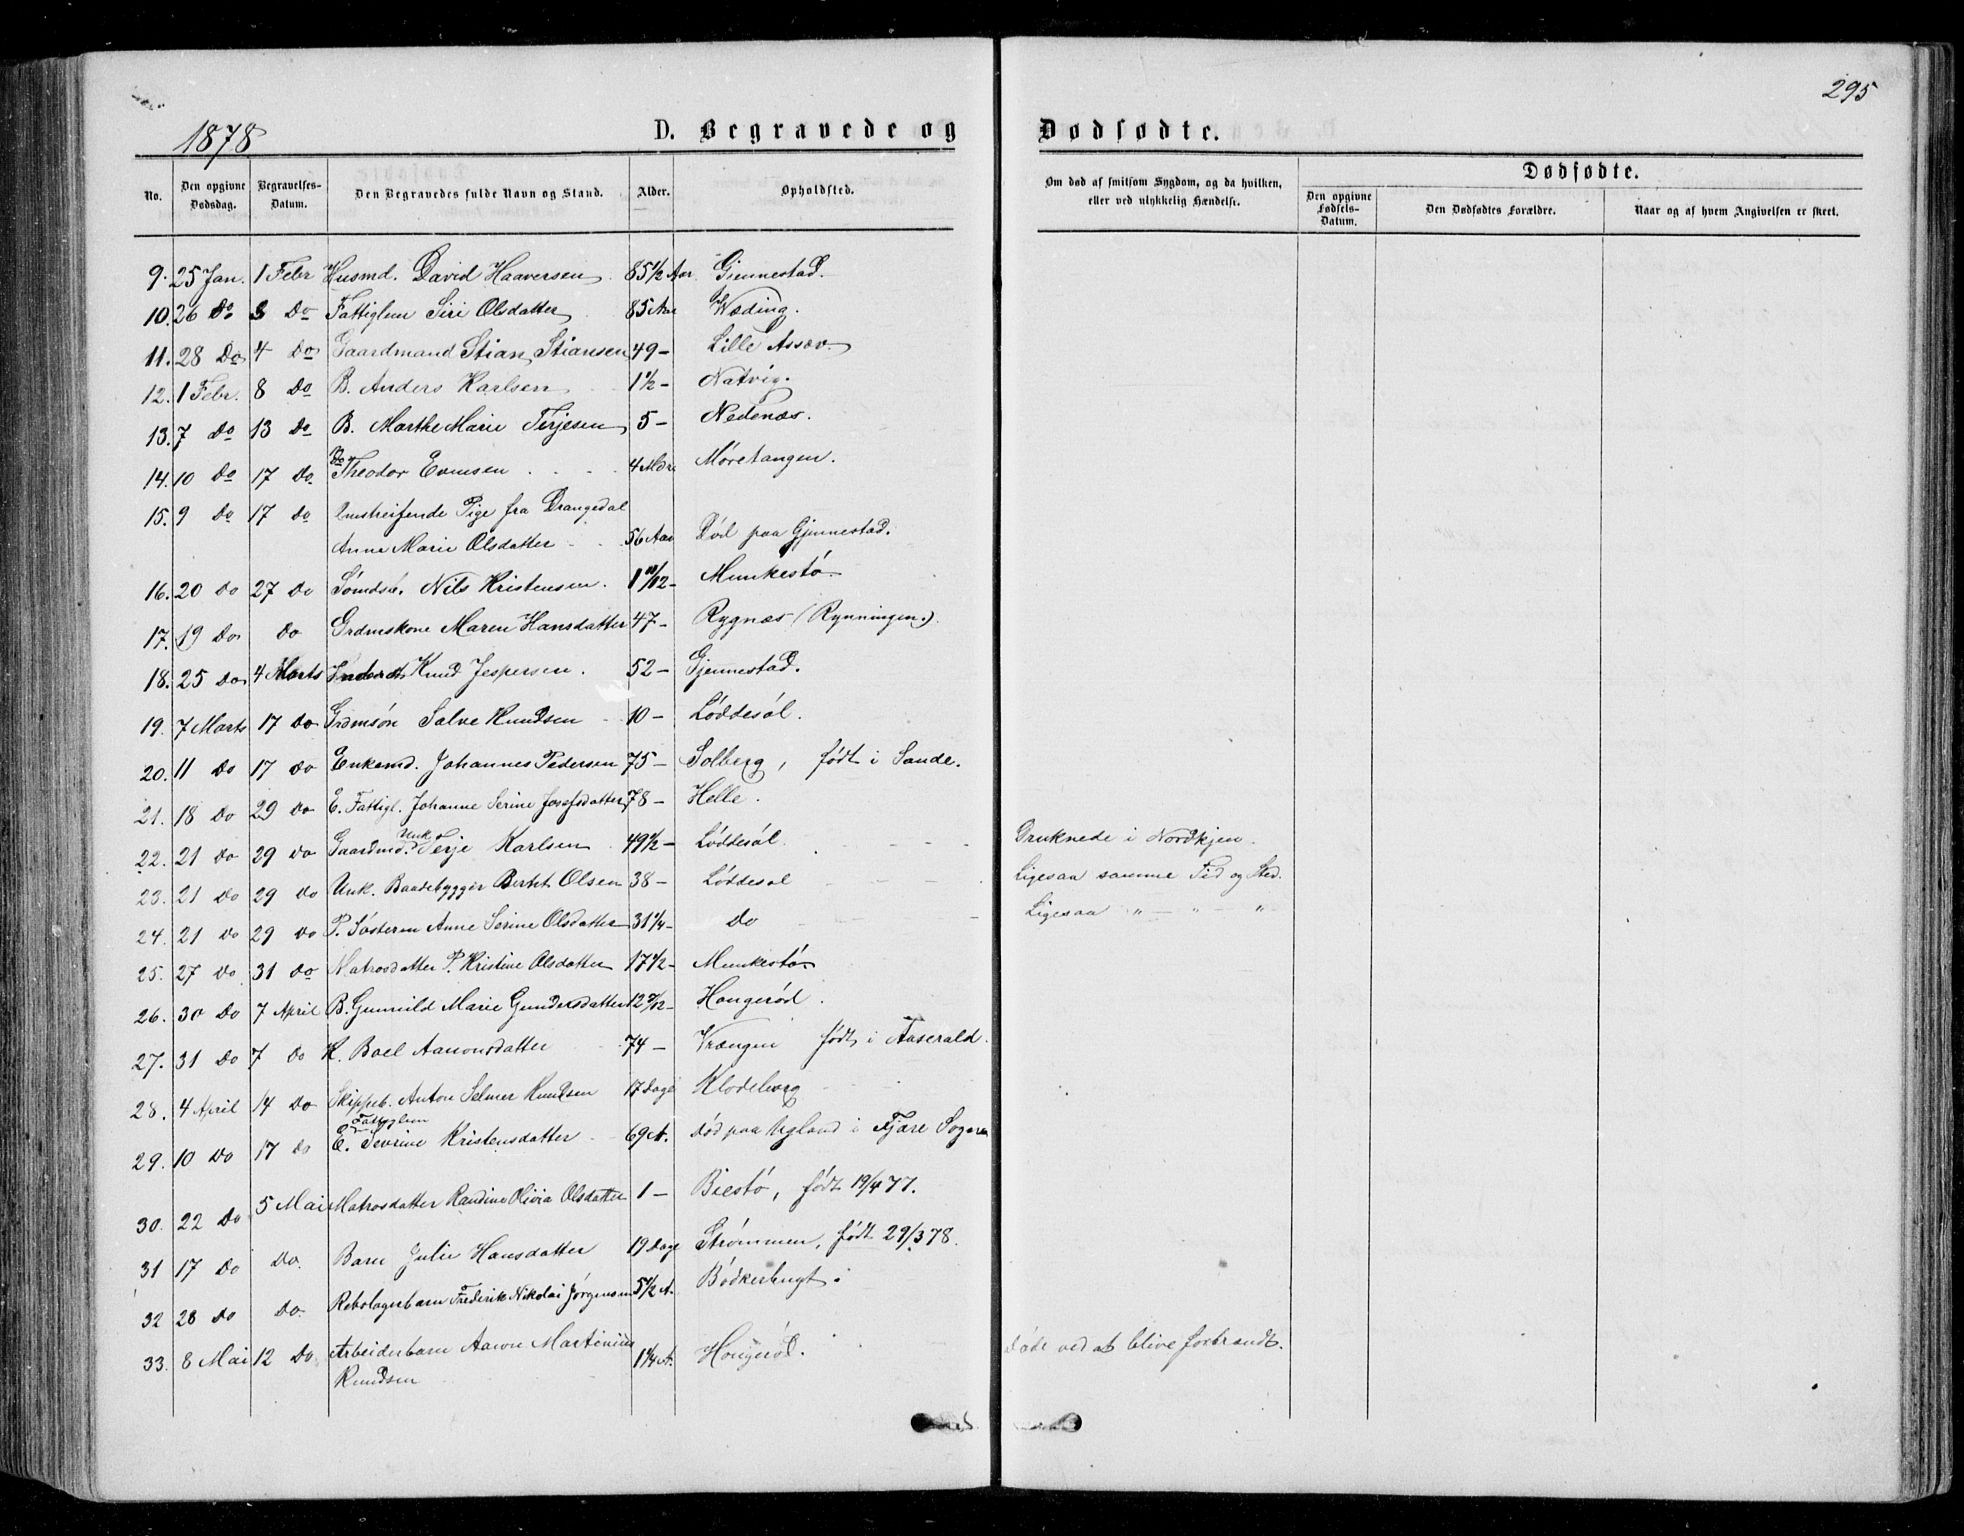 295
1878
D. Begravede og Dødfødte.
No. Den opgivne Dødsdag. Begravelses-Datum. Den Begravedes fulde Navn og Stand. Alder. Opholdsted. Om død af smitsom Sygdom, og da hvilken, eller ved ulykkelig Hændelse. Dødfødte. Den opgivne Fødsels-Datum. Den Dødfødtes Forældre. Naar og af hvem Angivelsen er skeet.
9. 25 Jan. 1 Febr Husmd. David Haaversen 85 1/2 Aar Gjennestad.
10. 26 Do 3 Do Fattiglem Siri Olsdatter 85 Aar Wæding.
11. 28 Do 4 Do Gaardmand Stian Stiansen 49 - Lille Assæv.
12. 1 Febr. 8 Do B. Anders Karlsen 1 1/2 - Natvig.
13. 7 Do 13 Do B. Marthe Marie Terjesen 5 - Nedenæs.
14. 10 Do 17 Do Theodor Evensen 4 Mdr Møretangen.
15. 9 Do 17 Do Omstreifende Pige fra Drangedal
Anne Marie Olsdatter 56 Aar Død paa Gjennestad.
16. 20 Do 27 Do Sømdsb. Nils Kristensen. 1 10/12 - Munkestø
17. 19 Do Do Grdmskone Maren Hansdatter 47 - Rygnæs (Rynningen.)
18. 25 Do 4 Marts Knud Jespersen. 52 - Gjennestad.
19. 7 Marts 17 Do Grdmsøn Salve Knudsen 10 - Løddesøl.
20. 11 Do 17 Do Enkemd. Johannes Pedersen 75 - Solberg, født i Sande.
21. 18 Do 29 Do E. Fattigl. Johanne Serine Josefsdatter 78 - Helle.
22. 21 Do 29 Do Gaardmd. Unk. Terje Karlsen 49 1/2 - Løddesøl. Druknede i Nordkjen.
23. 21 Do 29 Do Unk. Baadebygger Berht Olsen 38 - Løddesøl Ligesaa samme Tid og Sted.
24. 21 Do 29 Do P. Søsteren Anne Serine Olsdatter 31 1/4 - Do Ligesaa " - " - "
25. 27 Do 31 Do Matrosdatter P. Kristine Olsdatter 17 1/2 - Munkestø
26. 30 Do 7 April B. Gunnild Marie Gundersdatter 12 - Haugerød.
27. 31 Do 7 Do K. Boel Aanonsdatter 74 - Vrængen født i Aaserald.
28. 4 April 14 Do Skippeb. Anton Selmer Knudsen 17 Dage Klodeborg
29. 10 Do 17 Do E. Fattiglem Severine Kristensdatter 69 A. død paa Ugland i Fjære Sogn
30. 22 Do 5 Mai Matrosdatter Randine Olivia Olsdatter 1 - Biestø, født 19/4 77.
31 17 Do Do. Barn Julie Hansdatter 19 Dage Strømmen, født 29/3 78.
32 28 Do Do. Rebslagerbarn Frederik Nikolai Jørgensen 5 1/2 A. Bødkerbugt.
33. 8 Mai 12 Do Arbeiderbarn Aanon Martinius 1 1/4 A. Hougerød. Døde ved at blive forbrændt.
Knudsen